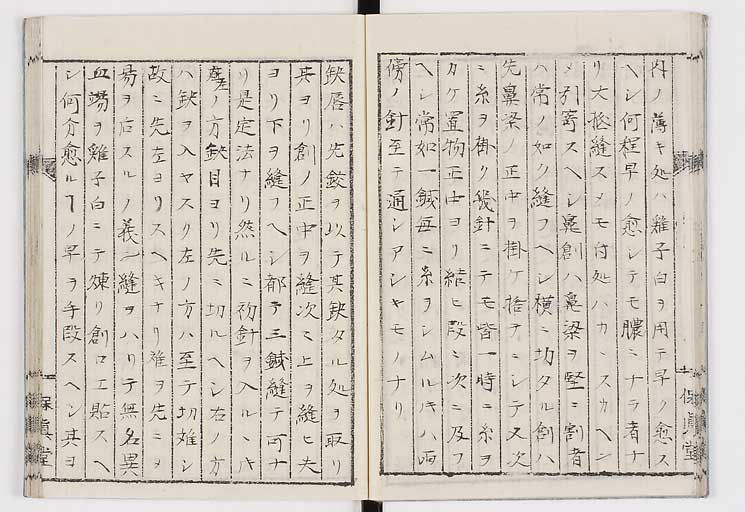 内ノ薄キ処ハ雞子白ヲ用テ早ク愈ス
ヘシ何程早ノ愈シテモ膿ニナラ者ナ
リ大抵縫スメモ付処ハカ スカヘシ
メ引寄スヘシ鼻創ハ鼻梁ヲ堅ニ割者
ハ常ノ如ク縫フヘシ横ニ切タル創ハ
先鼻梁ノ正中ヲ掛ケ捨ヲニシテ又次
ニ糸ヲ掛ク幾針ニテモ皆一時ニ糸ヲ
カケ置物正中ヨリ結ヒ段ニ次ニ及フ
ヘシ常如一鍼毎ニ糸ヲシムルキハ両
傍ノ針至テ通シアシキモノナリ
十一 保眞堂
缺唇ハ先鋏ヲ以テ其缺タル処ヲ取リ
夫ヨリ創ノ正中ヲ縫次ニ上ヲ縫ヒ夫
ヨリ下ヲ縫フヘシ都テ三鍼縫テ可ナ
リ是定法ナリ然ルニ初針ヲ入ルヽキ
ノ方缺目ヨリ先ニ切ルヘシ右ノ方
ハ鋏ヲ入ヤスク左ノ方ハ至テ切難シ
故ニ先左ヨリスヘキナリ難ヲ先ニメ
易ヲ后スルノ義シ縫ヲハリテ無名異
血竭ヲ雞子白ニテ煉リ創口エ貼スヘ
シ何分愈ルヿノ早ヲ手段スヘシ其ヨ
保眞堂